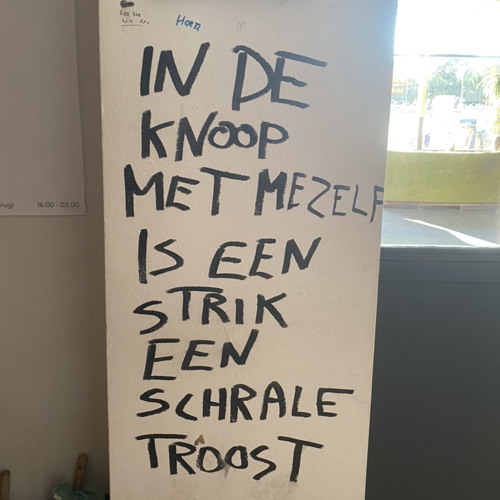 Horz
IN DE
KNOOP
MET MEZELF
IS EEN
STRIK
EEN
SCHRALE
TROOST
16:00 - 03:00